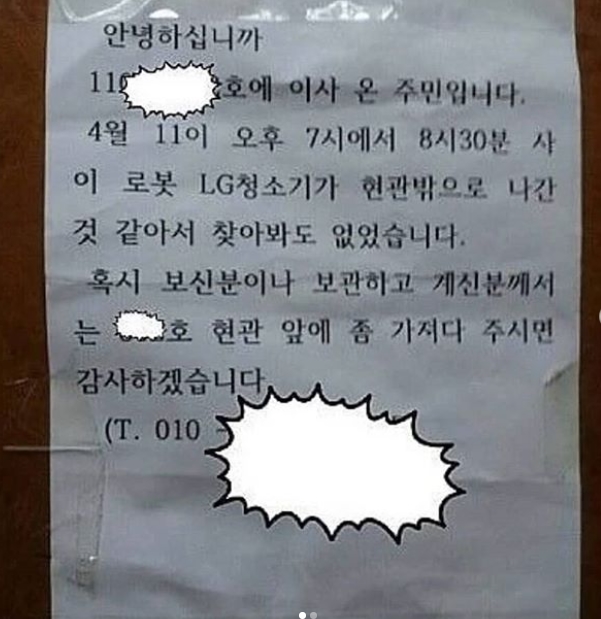 안녕하십니까
11 호에 이사 온 주민입니다.
4월 11이 오후 7시에서 8시30분 사
이 로봇 LG청소기가 현관밖으로 나간
것 같아서 찾아봐도 없었습니다.
혹시 보신분이나 보관하고 계신분께서
는 호 현관 앞에 좀 가져다 주시면
감사하겠습니다.
(T. 010 -